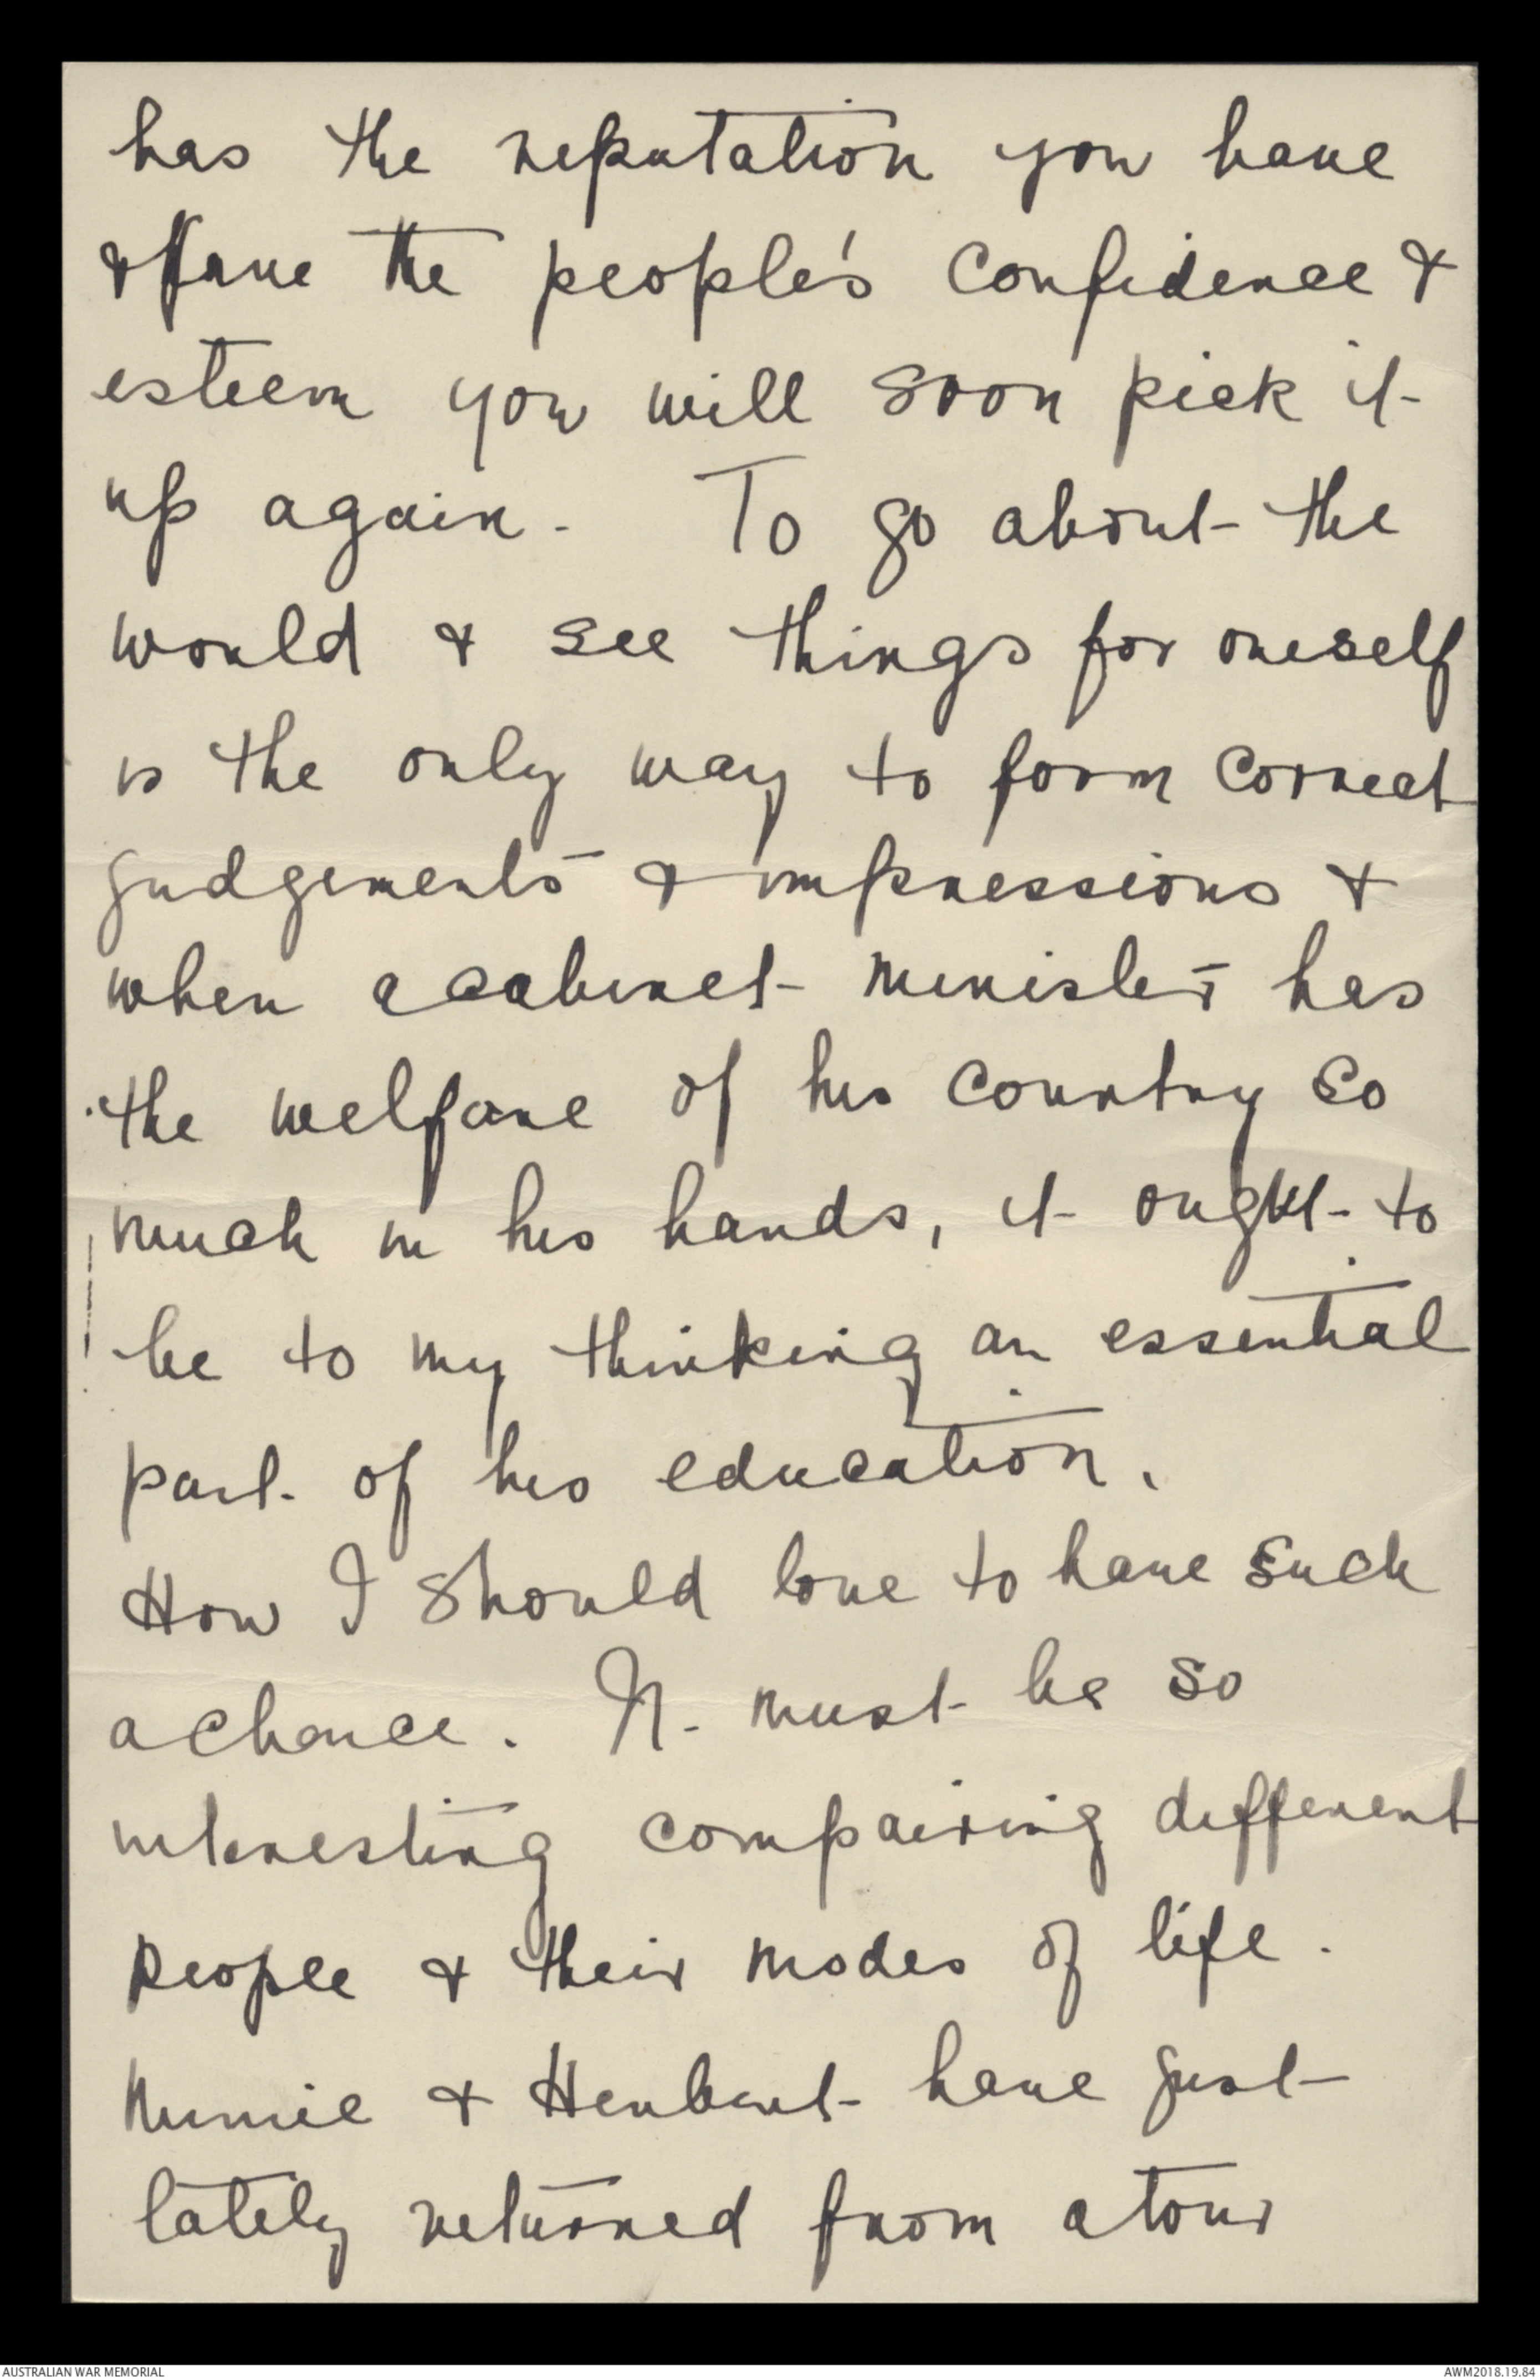 has the reputation you have
& have the people's confidence &
esteem you will soon pick it
up again. To go about the
world & see things for oneself
is the only way to form correct
judgements & impressions &
when a cabinet minister has
the welfare of his country so
much in his hands, it ought to
be to my thinking an essential
part of his education.
How I should love to have such
a chance. It must be so
interesting compairing different
people & their modes of life.
Minnie & Herbert have just
lately returned from a tour
AUSTRALIAN WAR MEMORIAL
AWM2018.19.84